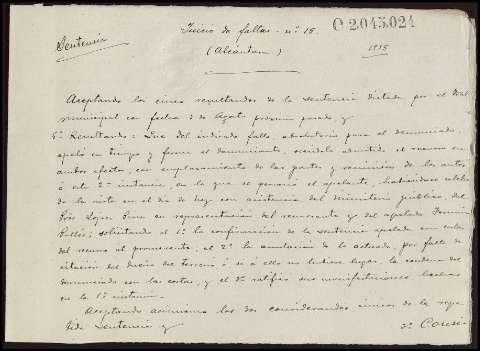 Juicio de faltas - nº 15.
C 2.045.024
Sentencia
(Alcántara)
1915
Aceptando los cinco resultandos de la sentencia dictada por el Tral
municipal en fecha 2 de Agosto próximo pasado, y
6º Resultando: Que del indicado fallo, absolutorio para el denunciado,
apeló en tiempo y forma el denunciante, siéndole admitido el recurso en
ambos efectos, con emplazamiento de las partes y remisión de los autos
á esta 2ª instancia, en la que se personó el apelante, habiéndose celebra-
do la vista en el día de hoy con asistencia del Ministerio público, del
Lopez en representación del recurrente y del apelado Fermín
solicitando el 1º la confirmación de la sentencia apelada con costas
del recurso al promovente, el 2º la anulación de lo actuado, por falta de
citación del dueño del terreno ó si á ello no hubiere lugar, la condena del
denunciado con las costas, y el 3º ratificó sus manifestaciones hechas
en la 1ª instancia.
Aceptando asimismo los dos considerandos únicos de la repe-
tida Sentencia y
3º Consi-